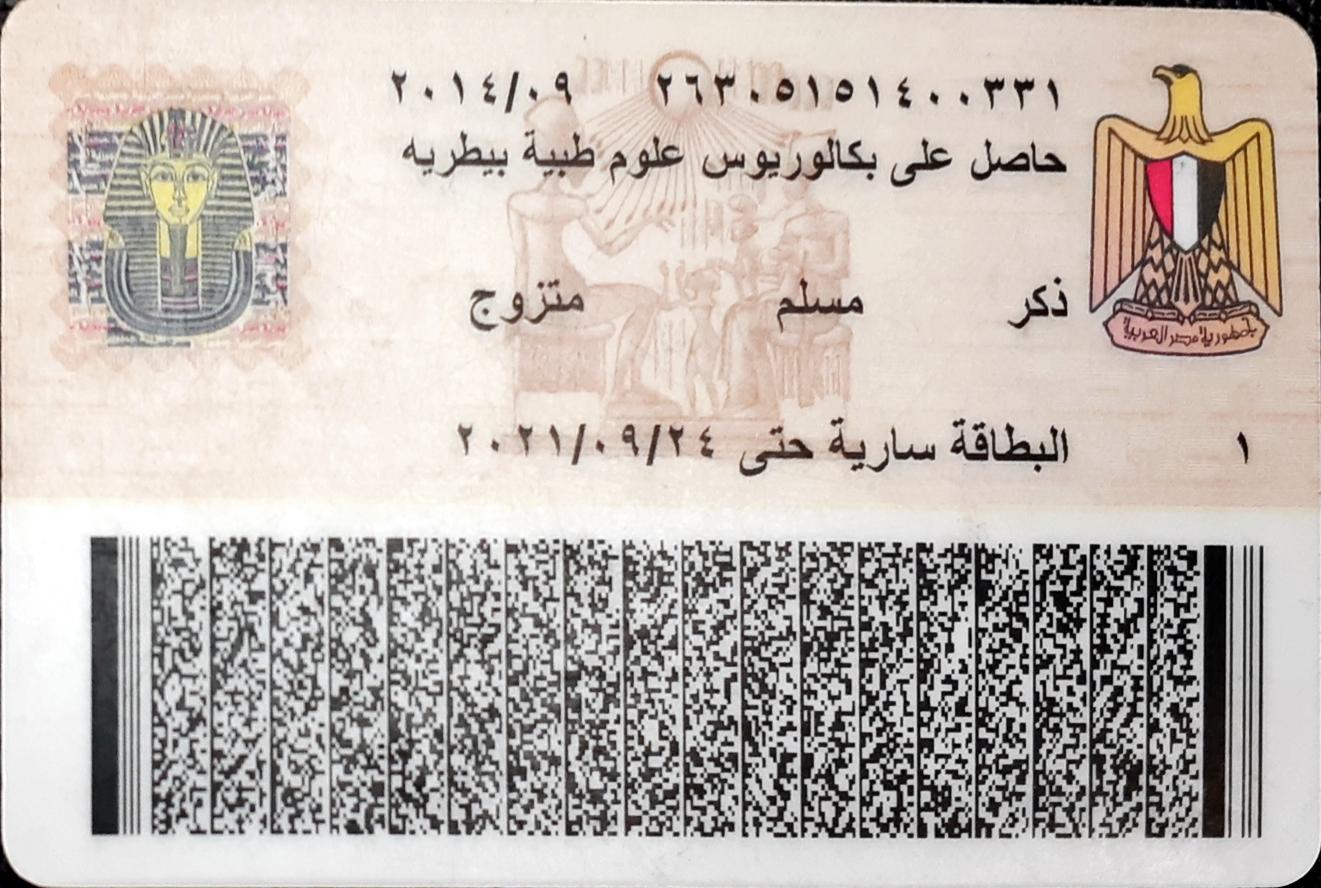 ٢٦٣٠٥١٥١٤٠٠٣٣١ ٢٠١٤/٠٩
حاصل على بكالوريوس علوم طبية بيطريه
ذكر مسلم متزوج
جمهورية مصر العربية
١ البطاقة سارية حتى ٢٠٢١/٠٩/٢٤